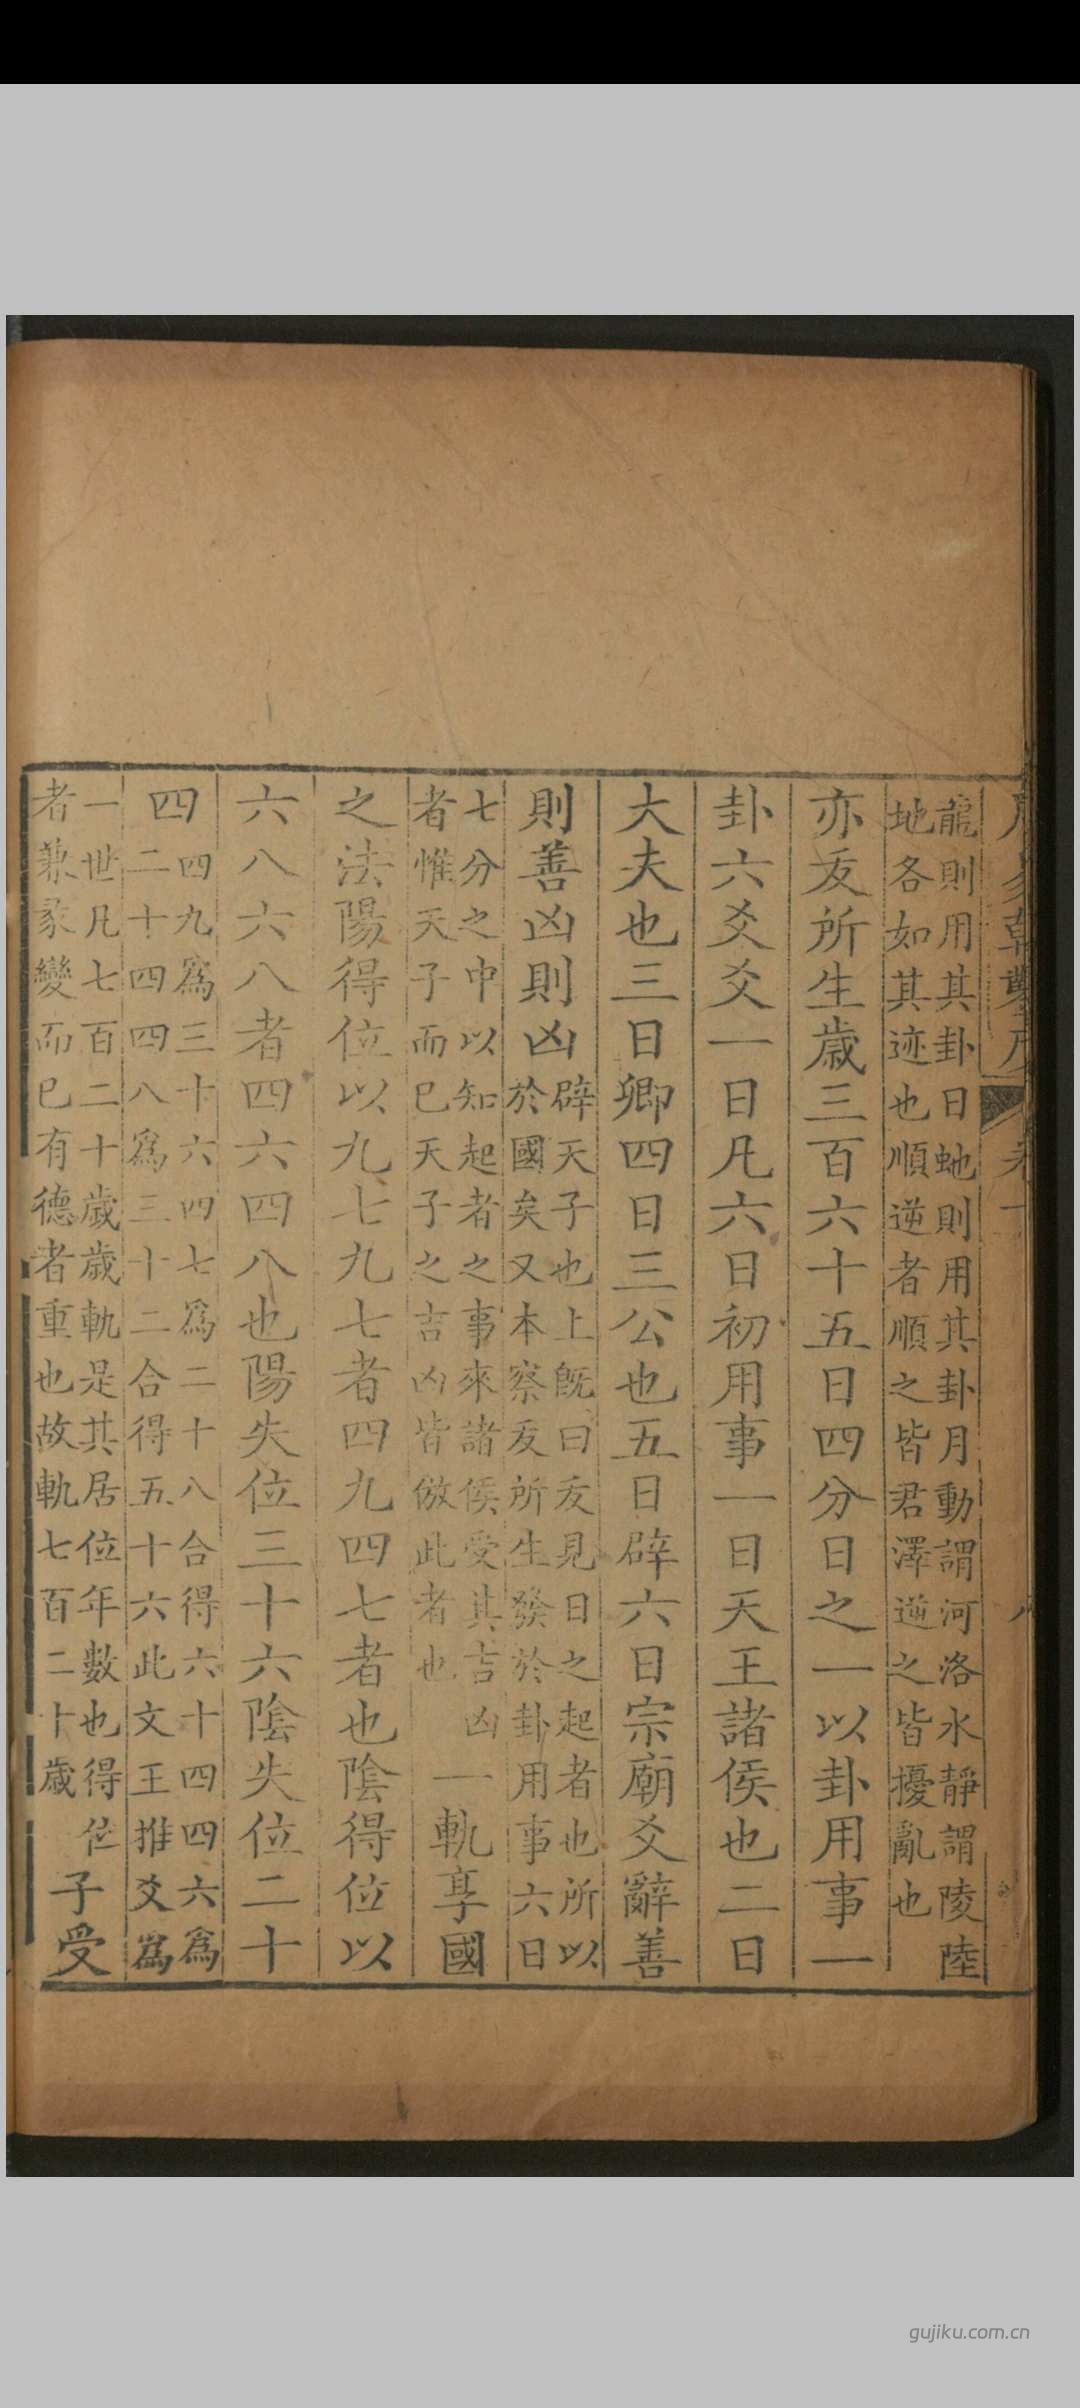 龍則用其卦日虵則用其卦月動謂河洛水靜謂陵陸
地各如其迹也順逆者順之皆君澤逆之皆擾亂也
亦叐所生歲三百六十五日四分日之一以卦用事一
卦六爻爻一日凡六日初用事一日天王諸侯也二日
大夫也三日卿四日三公也五日辟六日宗廟爻辭善
則善凶則凶
辟天子也上既曰叐見日之起者也所以
於國矣又本察叐所生發於卦用事六日
七分之中以知起者之事來諸侯受其吉凶
者惟天子而已天子之吉凶皆倣此者也
一軌享國
之法陽得位以九七九七者四九四七者也陰得位以
六八六八者四六四八也陽失位三十六陰失位二十
四
四九爲三十六四七爲二十八合得六十四四六爲
二十四四八爲三十二合得五十六此文王推爻爲
一世凡七百二十歲歲軌是其居位年數也得位
者兼彖變而已有德者重也故軌七百二十歲
子受
gujiku.com.cn